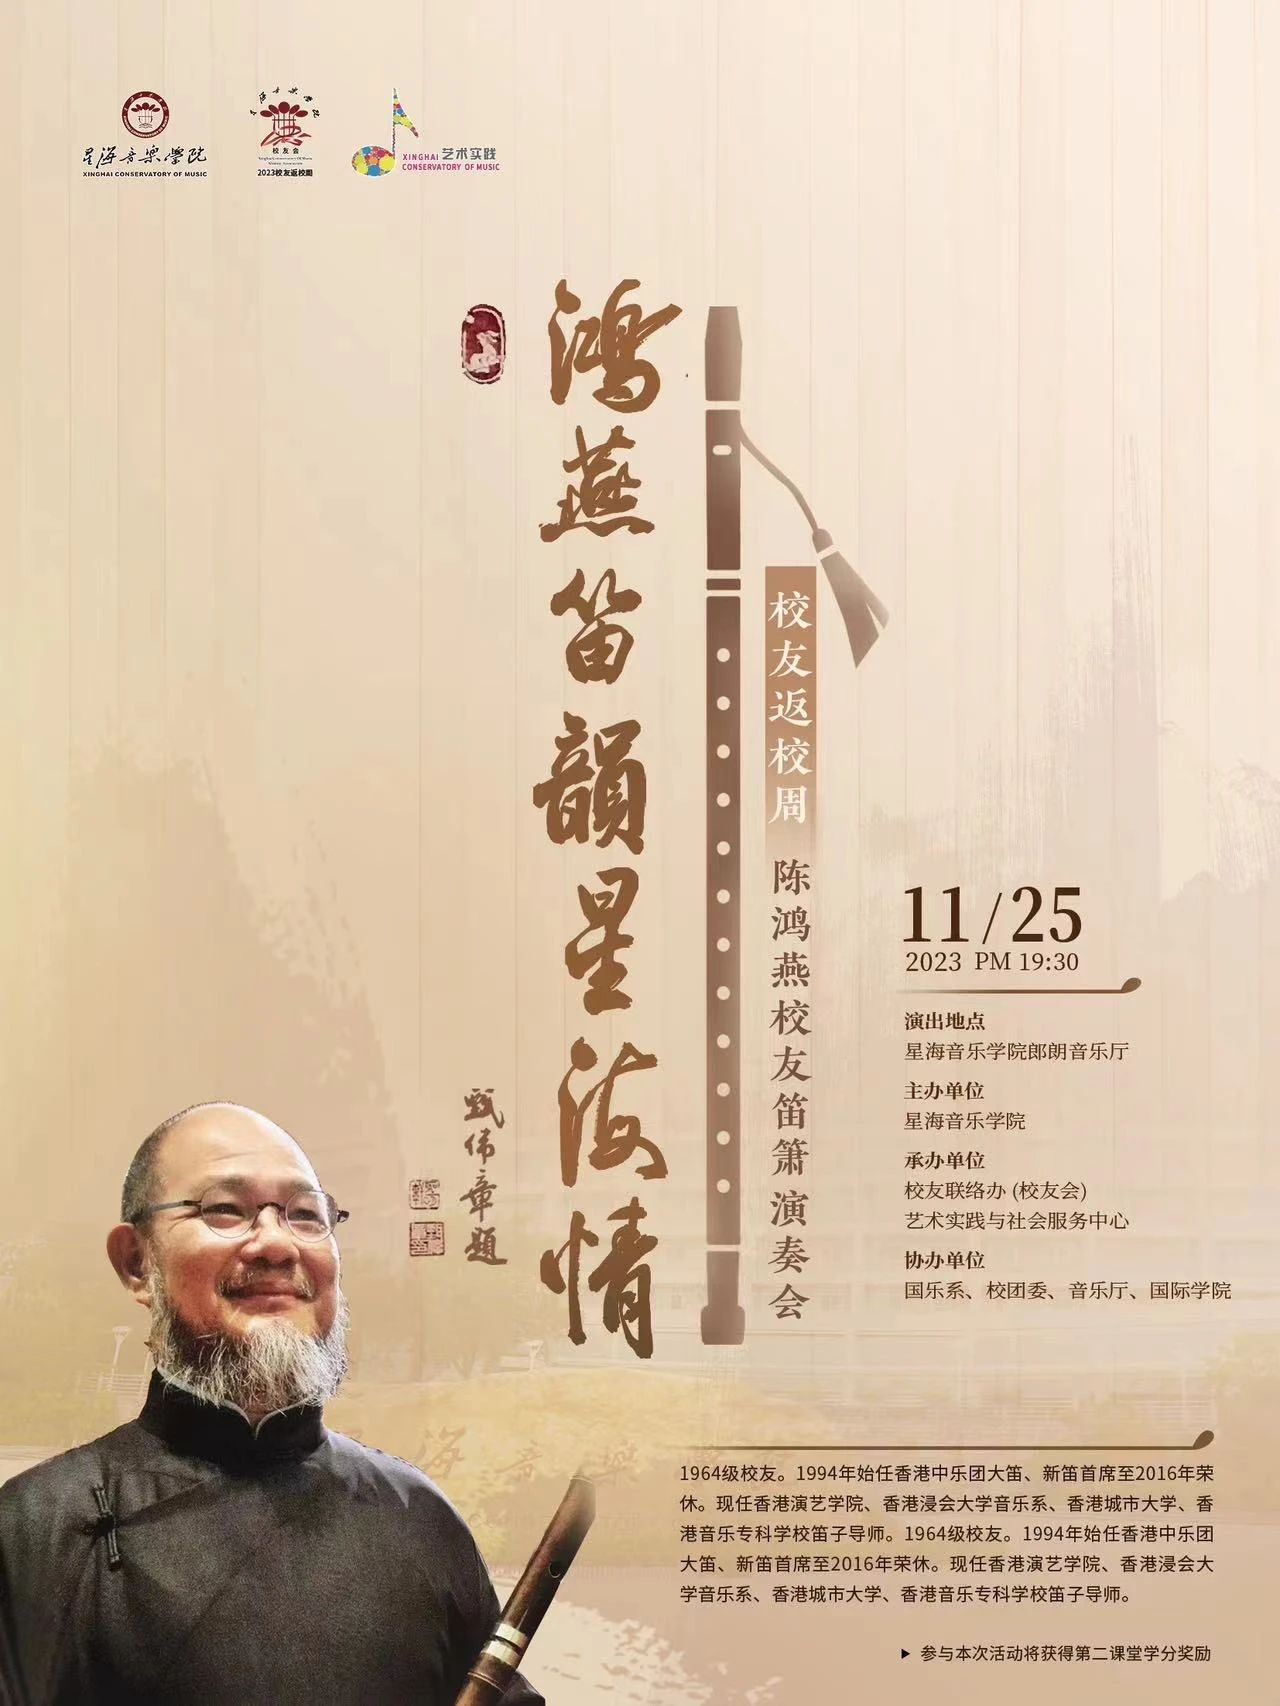 星海音樂學院
XINGHAI CONSERVATORY OF MUSIC
星海音樂學院
校友会
2023校友返校周
XINGHAI 艺术实践
CONSERVATORY OF MUSIC
鴻燕笛韻星海情
甄伟章題
校友返校周
陈鸿燕校友笛箫演奏会
11/25
2023 PM 19:30
演出地点
星海音乐学院郎朗音乐厅
主办单位
星海音乐学院
承办单位
校友联络办 (校友会)
艺术实践与社会服务中心
协办单位
国乐系、校团委、音乐厅、国际学院
1964级校友。1994年始任香港中乐团大笛、新笛首席至2016年荣
休。现任香港演艺学院、香港浸会大学音乐系、香港城市大学、香
港音乐专科学校笛子导师。1964级校友。1994年始任香港中乐团
大笛、新笛首席至2016年荣休。现任香港演艺学院、香港浸会大
学音乐系、香港城市大学、香港音乐专科学校笛子导师。
▶ 参与本次活动将获得第二课堂学分奖励